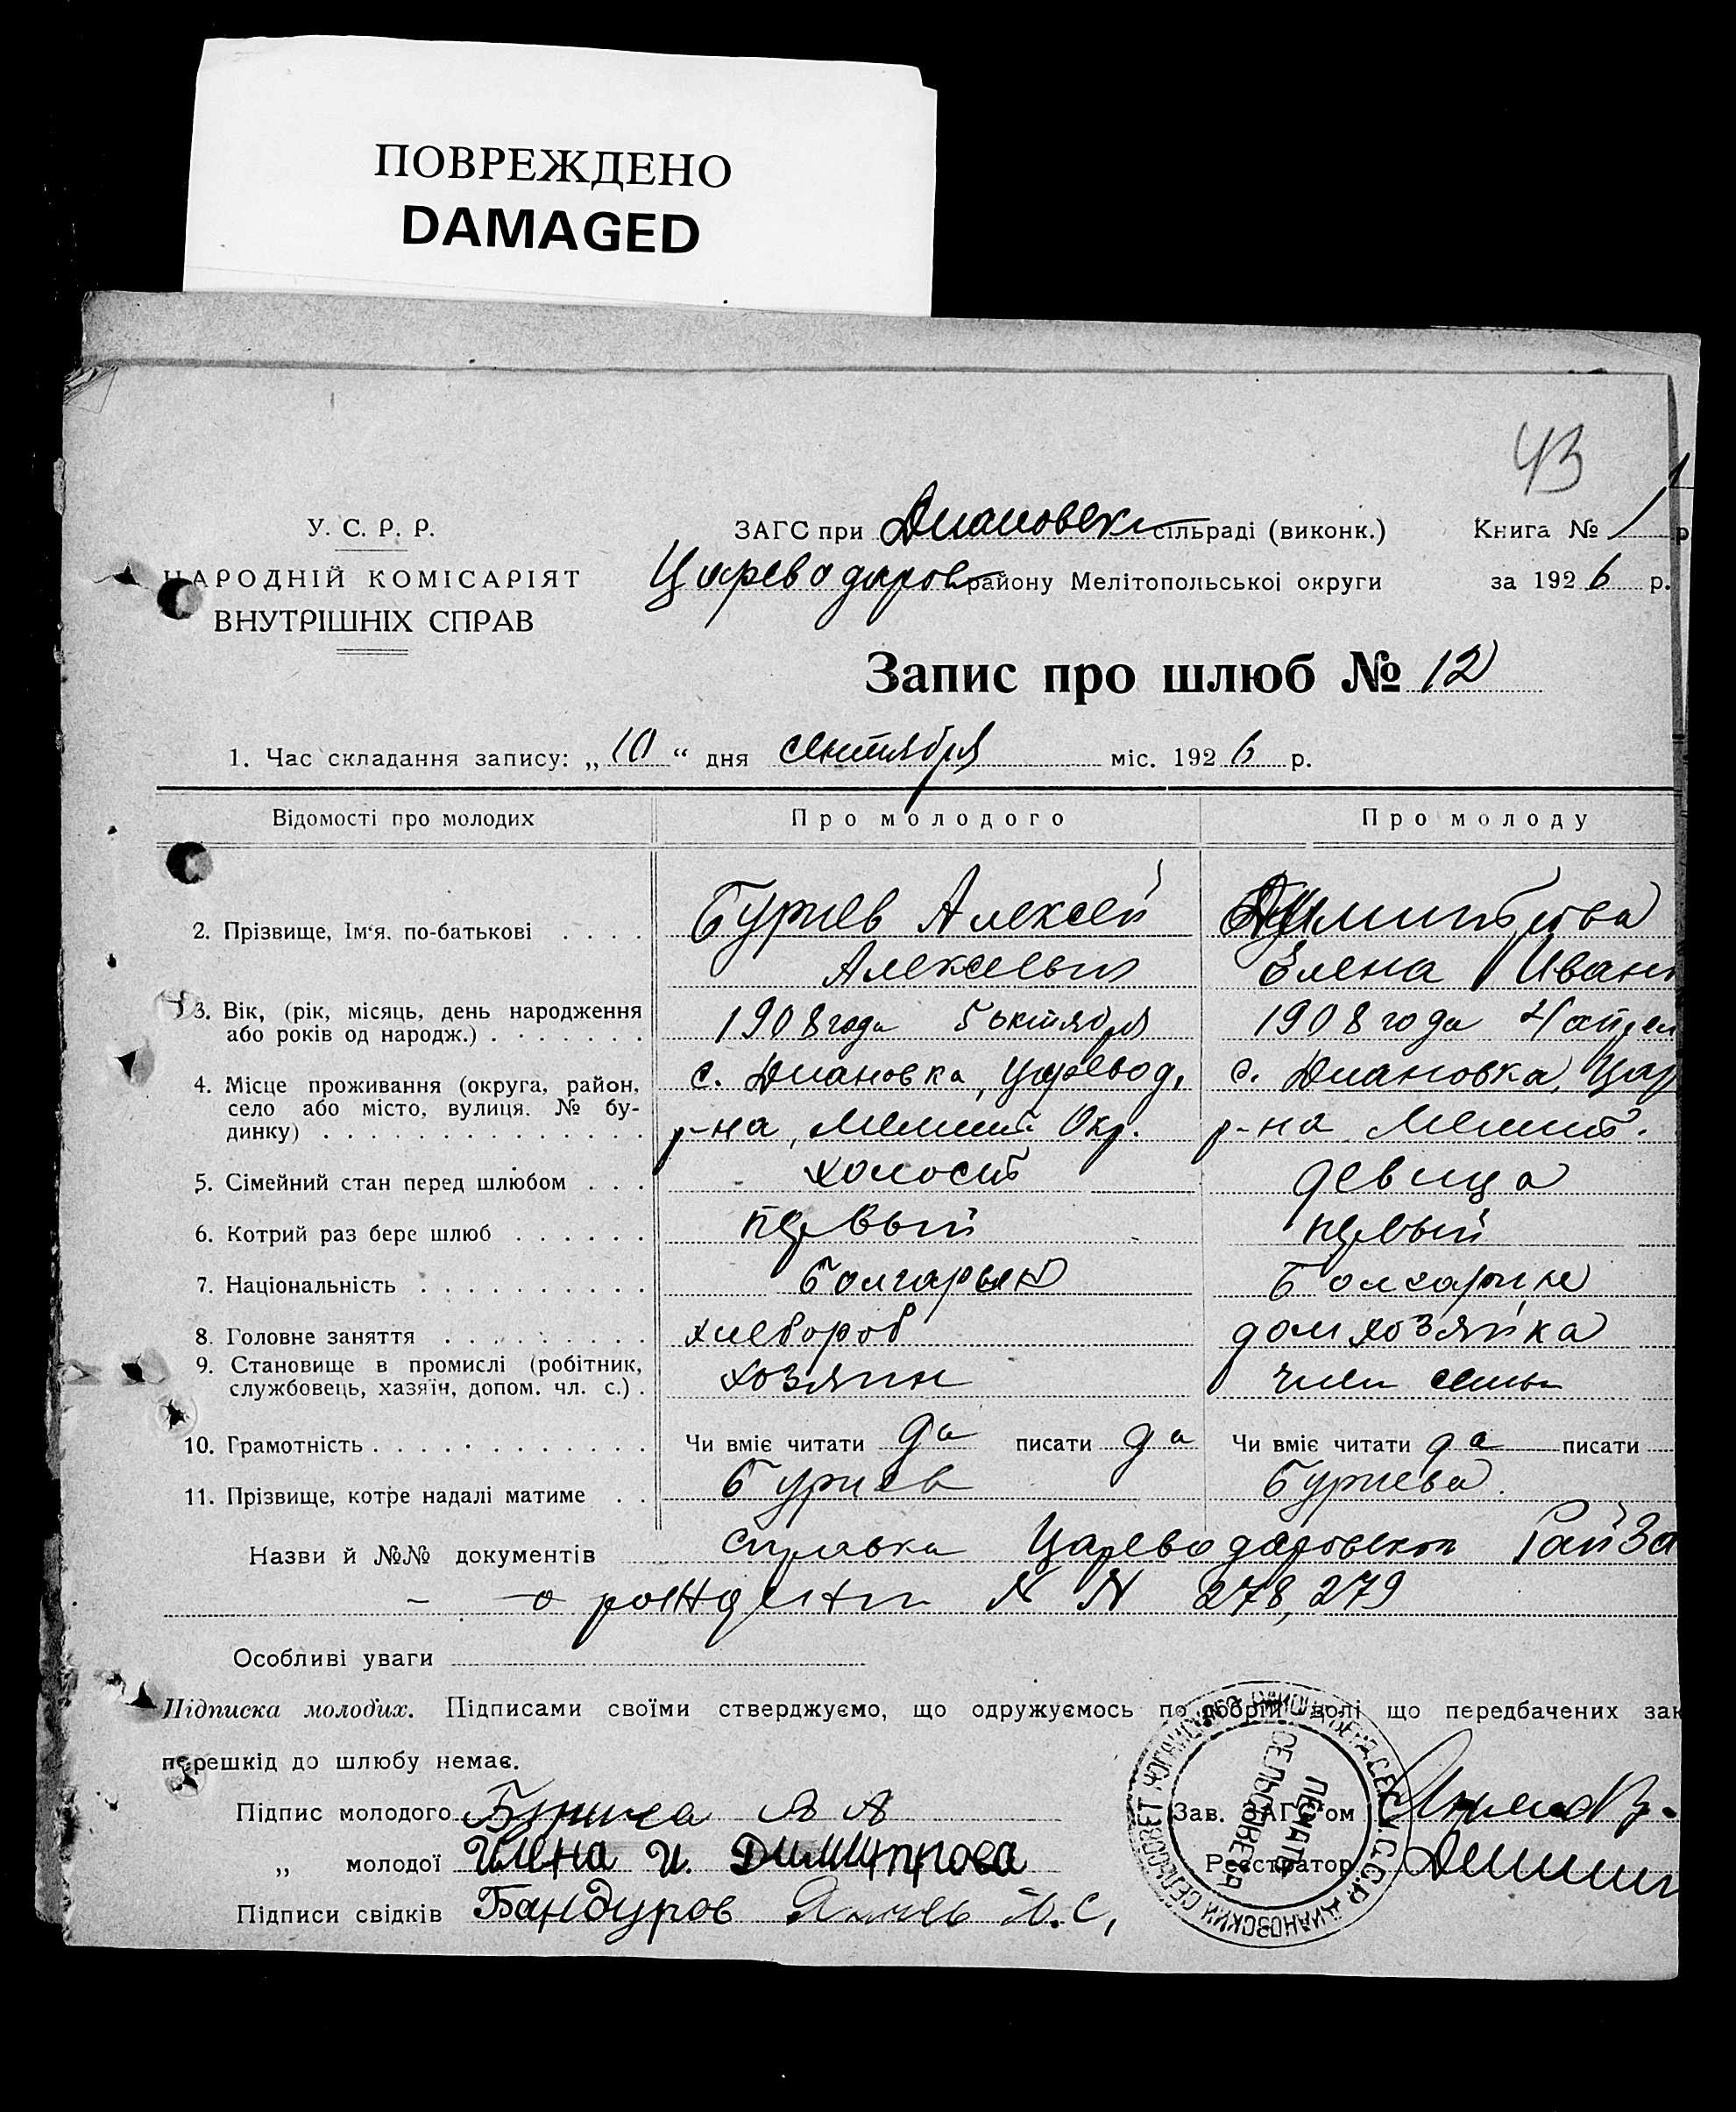 ПОВРЕЖДЕНО
DAMAGED
43
У. С. Р. Р.
НАРОДНІЙ КОМІСАРІЯТ
ВНУТРІШНІХ СПРАВ
ЗАГС при Диановск сільраді (виконк.) Книга № 1
Цареводаров району Мелітопольської округи за 1926 р.
Запис про шлюб № 12
1. Час складання запису: „10“ дня сентября міс. 1926 р.
Відомості про молодих Про молодого Про молоду
2. Прізвище, Ім'я. по-батькові Буриев Алексей
Алексеевич Елена Иван
3. Вік, (рік, місяць, день народження
або років од народж.) 1908 года 5 октября 1908 года 4 апрел
4. Місце проживання (округа, район,
село або місто, вулиця. № бу-
динку)
с. Диановка, Царевод. с. Диановка, Цар
р-на, Мелит. Окр. р-на Мелит.
5. Сімейний стан перед шлюбом холост девица
6. Котрий раз бере шлюб первый первый
7. Національність
8. Головне заняття хлебороб домхозяйка
9. Становище в промислі (робітник,
службовець, хазяїн, допом. чл. с.) хозяин член семьи
10. Грамотність Чи вміє читати да писати да Чи вміє читати да писати
11. Прізвище, котре надалі матиме Буриев Буриева.
Назви й №№ документів справка Цареводаровского РайЗа
о рождении N N 278, 279
Особливі уваги
Підписка молодих. Підписами своїми стверджуємо, що одружуємось по добрій волі що передбачених зак
перешкід до шлюбу немає.
Підпис молодого
Зав. ЗАГС'ом
„ молодої Илена И. Димитрова
Реєстратор
Підписи свідків Бандуров
ДИАНОВСКИЙ СЕЛЬСОВЕТ
У.С.С.Р.